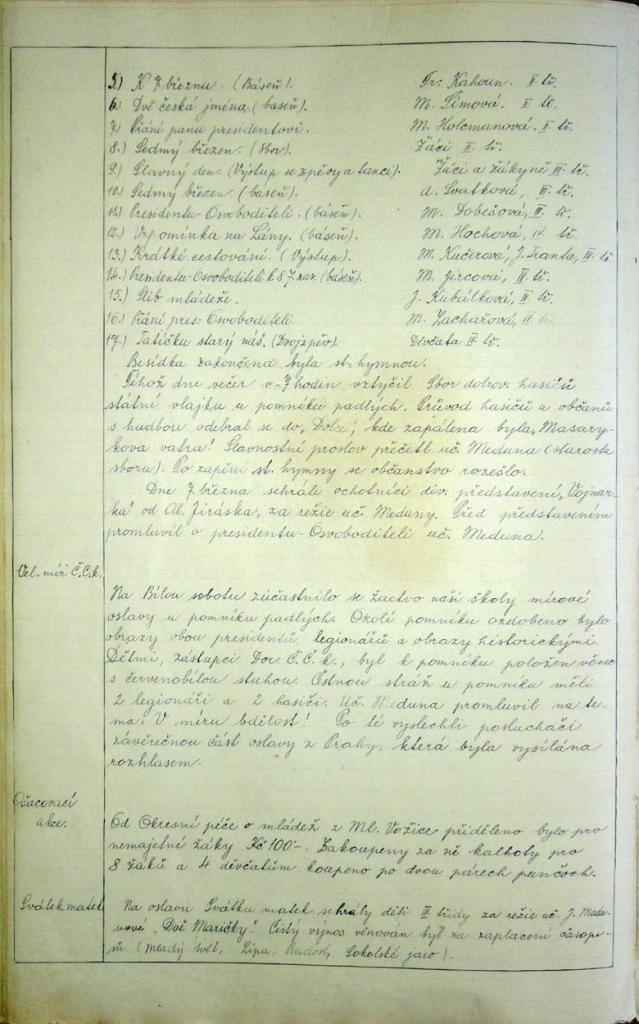 5.) K 7. březnu. (Báseň). Fr. Kahoun. II. tř.
6.) Dvě česká jména. (báseň). M. Šímová. II. tř.
7.) Přání panu presidentovi. M. Holcmanová. II. tř.
8.) Sedmý březen. (Sbor). Žáci II. tř.
9.) Slavný den. (Výstup se zpěvy a tanci). Žáci a žákyně III. tř.
10.) Sedmý březen. (báseň). A. Svatková, III. tř.
11.) Presidentu-Osvoboditeli. (báseň). M. Dobešová, II. tř.
12.) Vzpomínka na Lány. (báseň). M. Hochová, IV. tř.
13.) Krátké cestování. (Výstup). M. Kučerová, J. Franta, III. tř.
14.) Presidentu-Osvoboditeli k 87. nar. (báseň). M. Jircová, II. tř.
15.) Slib mládeže. J. Kubálková, II. tř.
16.) Přání pres-Osvoboditeli. M. Zachařová, II. tř.
17.) Tatíčku starý náš. (Dvojzpěv). Děvčata III. tř.
Besídka zakončena byla st. hymnou.
Téhož dne večer v 7 hodin vztyčil Sbor dobrov. hasičů
státní vlajku u pomníku padlých. Průvod hasičů a občanů
s hudbou odebral se do „Dolce", kde zapálena byla „Masary-
kova vatra". Slavnostní proslov přečetl uč. Meduna (starosta
sboru). Po zapění st. hymny se občanstvo rozešlo.
Dne 7. března sehráli ochotníci div. představení „Vojnar-
ka" od Al. Jiráska, za režie uč. Meduny. Před představením
promluvil o presidentu-Osvoboditeli uč. Meduna.
Vel. mír Č.Č.k.
Na Bílou sobotu zúčastnilo se žactvo naší školy mírové
oslavy u pomníku padlých. Okolí pomníku ozdobeno bylo
obrazy obou presidentů, legionářů a obrazy historickými.
Dětmi, zástupci Dor. Č.Č.k., byl k pomníku položen věnec
s červenobílou stuhou. Čestnou stráž u pomníku měli
2 legionáři a 2 hasiči. Uč. Meduna promluvil na te-
ma: V míru bdělost! Po té vyslechli posluchači
závěrečnou část oslavy z Prahy, která byla vysílána
rozhlasem.
Ošacovací
akce.
Od Okresní péče o mládež z Ml. Vožice přiděleno bylo pro
nemajetné žáky Kč 100-. Zakoupeny za ně kalhoty pro
8 žáků a 4 děvčatům koupeno po dvou párech punčoch.
Svátek matek
Na oslavu Svátku matek sehrály děti III. třídy za režie uč. J. Medu-
nové „Dvě Maričky". Čistý výnos věnován byl na zaplacení časopi-
sů. (Mladý svět, Lípa, Radost, Sokolské jaro).